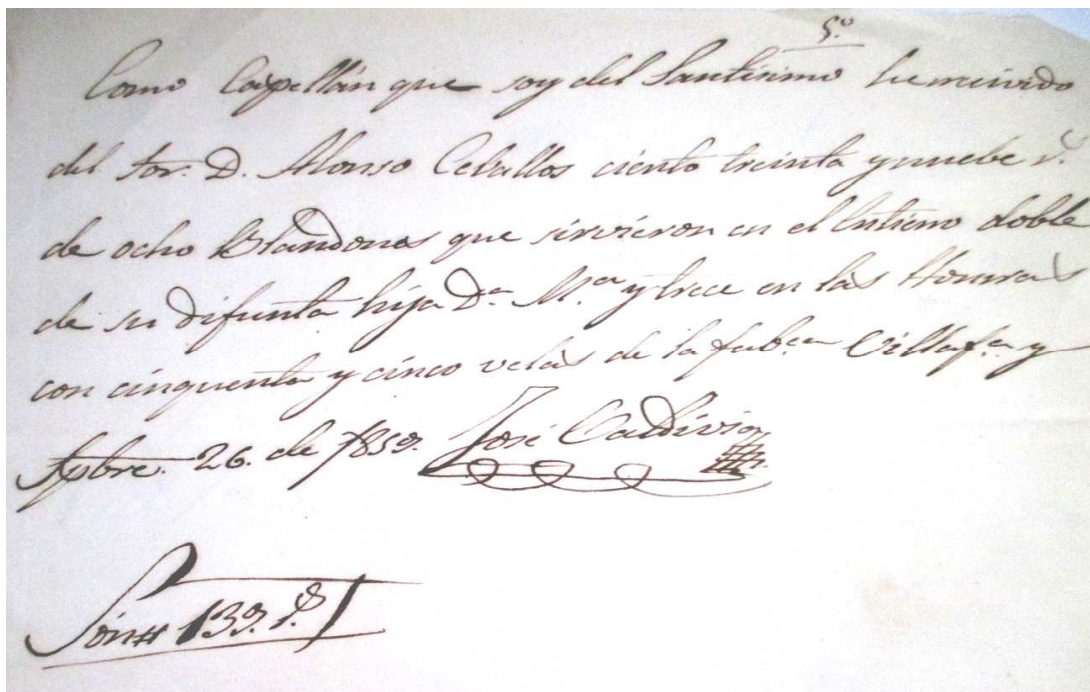 S.º
Como Capellán que soy del Santisimo he recivido
del Sor. D. Alonso Ceballos ciento treinta y nuebe r.ˢ
de ocho Blandones que sirvieron en el Entierro doble
de su difunta hija D.ª M.ª y trece en las Honras
con cinquenta y cinco velas de la fab.ca Villaf.ca y
Sepbre. 26. de 1859. José Valdivia
Son# 139. r.ˢ